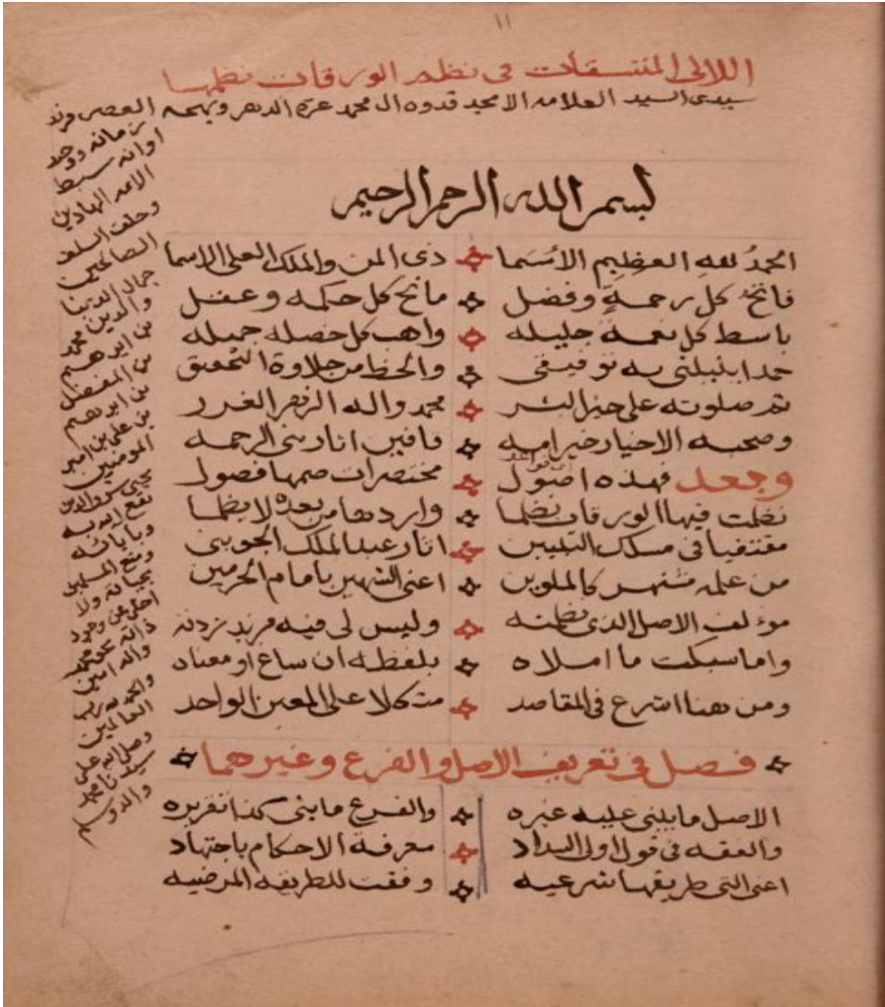 ١١
اللآلي المتسقات في نظم الورقات نظمها
سيدي السيد العلامة الامجد قدوة ال محمد عزة الدهر وبهجة العصر فريد
زمانه ووحيد
اوانه سبط
الائمه الهادين
وخلف السلف
الصالحين
جمال الدنيا
والدين محمد
بن ابرهيم
بن المفضل
بن ابرهيم
بن علي بن امير
المومنين
يحيى شرف الدين
نفع الله به
وبابائه
ومتع المسلمين
بحياته ولا
اخلى عن وجوده
واله امين
والحمد لله رب
العالمين
وصلى الله على
سيدنا محمد
واله وسلم
بسم الله الرحمن الرحيم
الحمد لله العظيم الاسما ذي المن والملك العلي الاسما
فاتح كل رحمة وفضل مانح كل حكمه وعقل
باسط كل نعمة جليله واهب كل خصله جميله
حمدا ينيلني به توفيقي والحظ من حلاوة التحقيق
ثم صلوته على خير البشر محمد واله الزهر الغرر
وصحبه الاخيار خير امه قافين اثار بني الرحمه
وبعد فهذه اصول مختصرات ضمها فصول
نظمت فيها الورقات نظما وارد هامن بعده لا يظما
مقتفيا في مسلك التبيين اثار عبد الملك الجويني
من علمه مشتهر كالملوين اعني الشهير بامام الحرمين
مولف الاصل الذي نظمته وليس لي فيه فريد زدته
واما سبكت ما املاه بلفظه ان ساغ او معناه
ومن هنا اشرع في المقاصد متكلا على المعين الواحد
فصل في تعريف الاصل والفرع وغيرهما
الاصل ما يبنى عليه غيره والفرع ما يبنى كذا تقريره
والفقه في قول اولي السداد معرفة الاحكام باجتهاد
اعني التي طريقها شرعيه وفقت للطريقه المرضيه